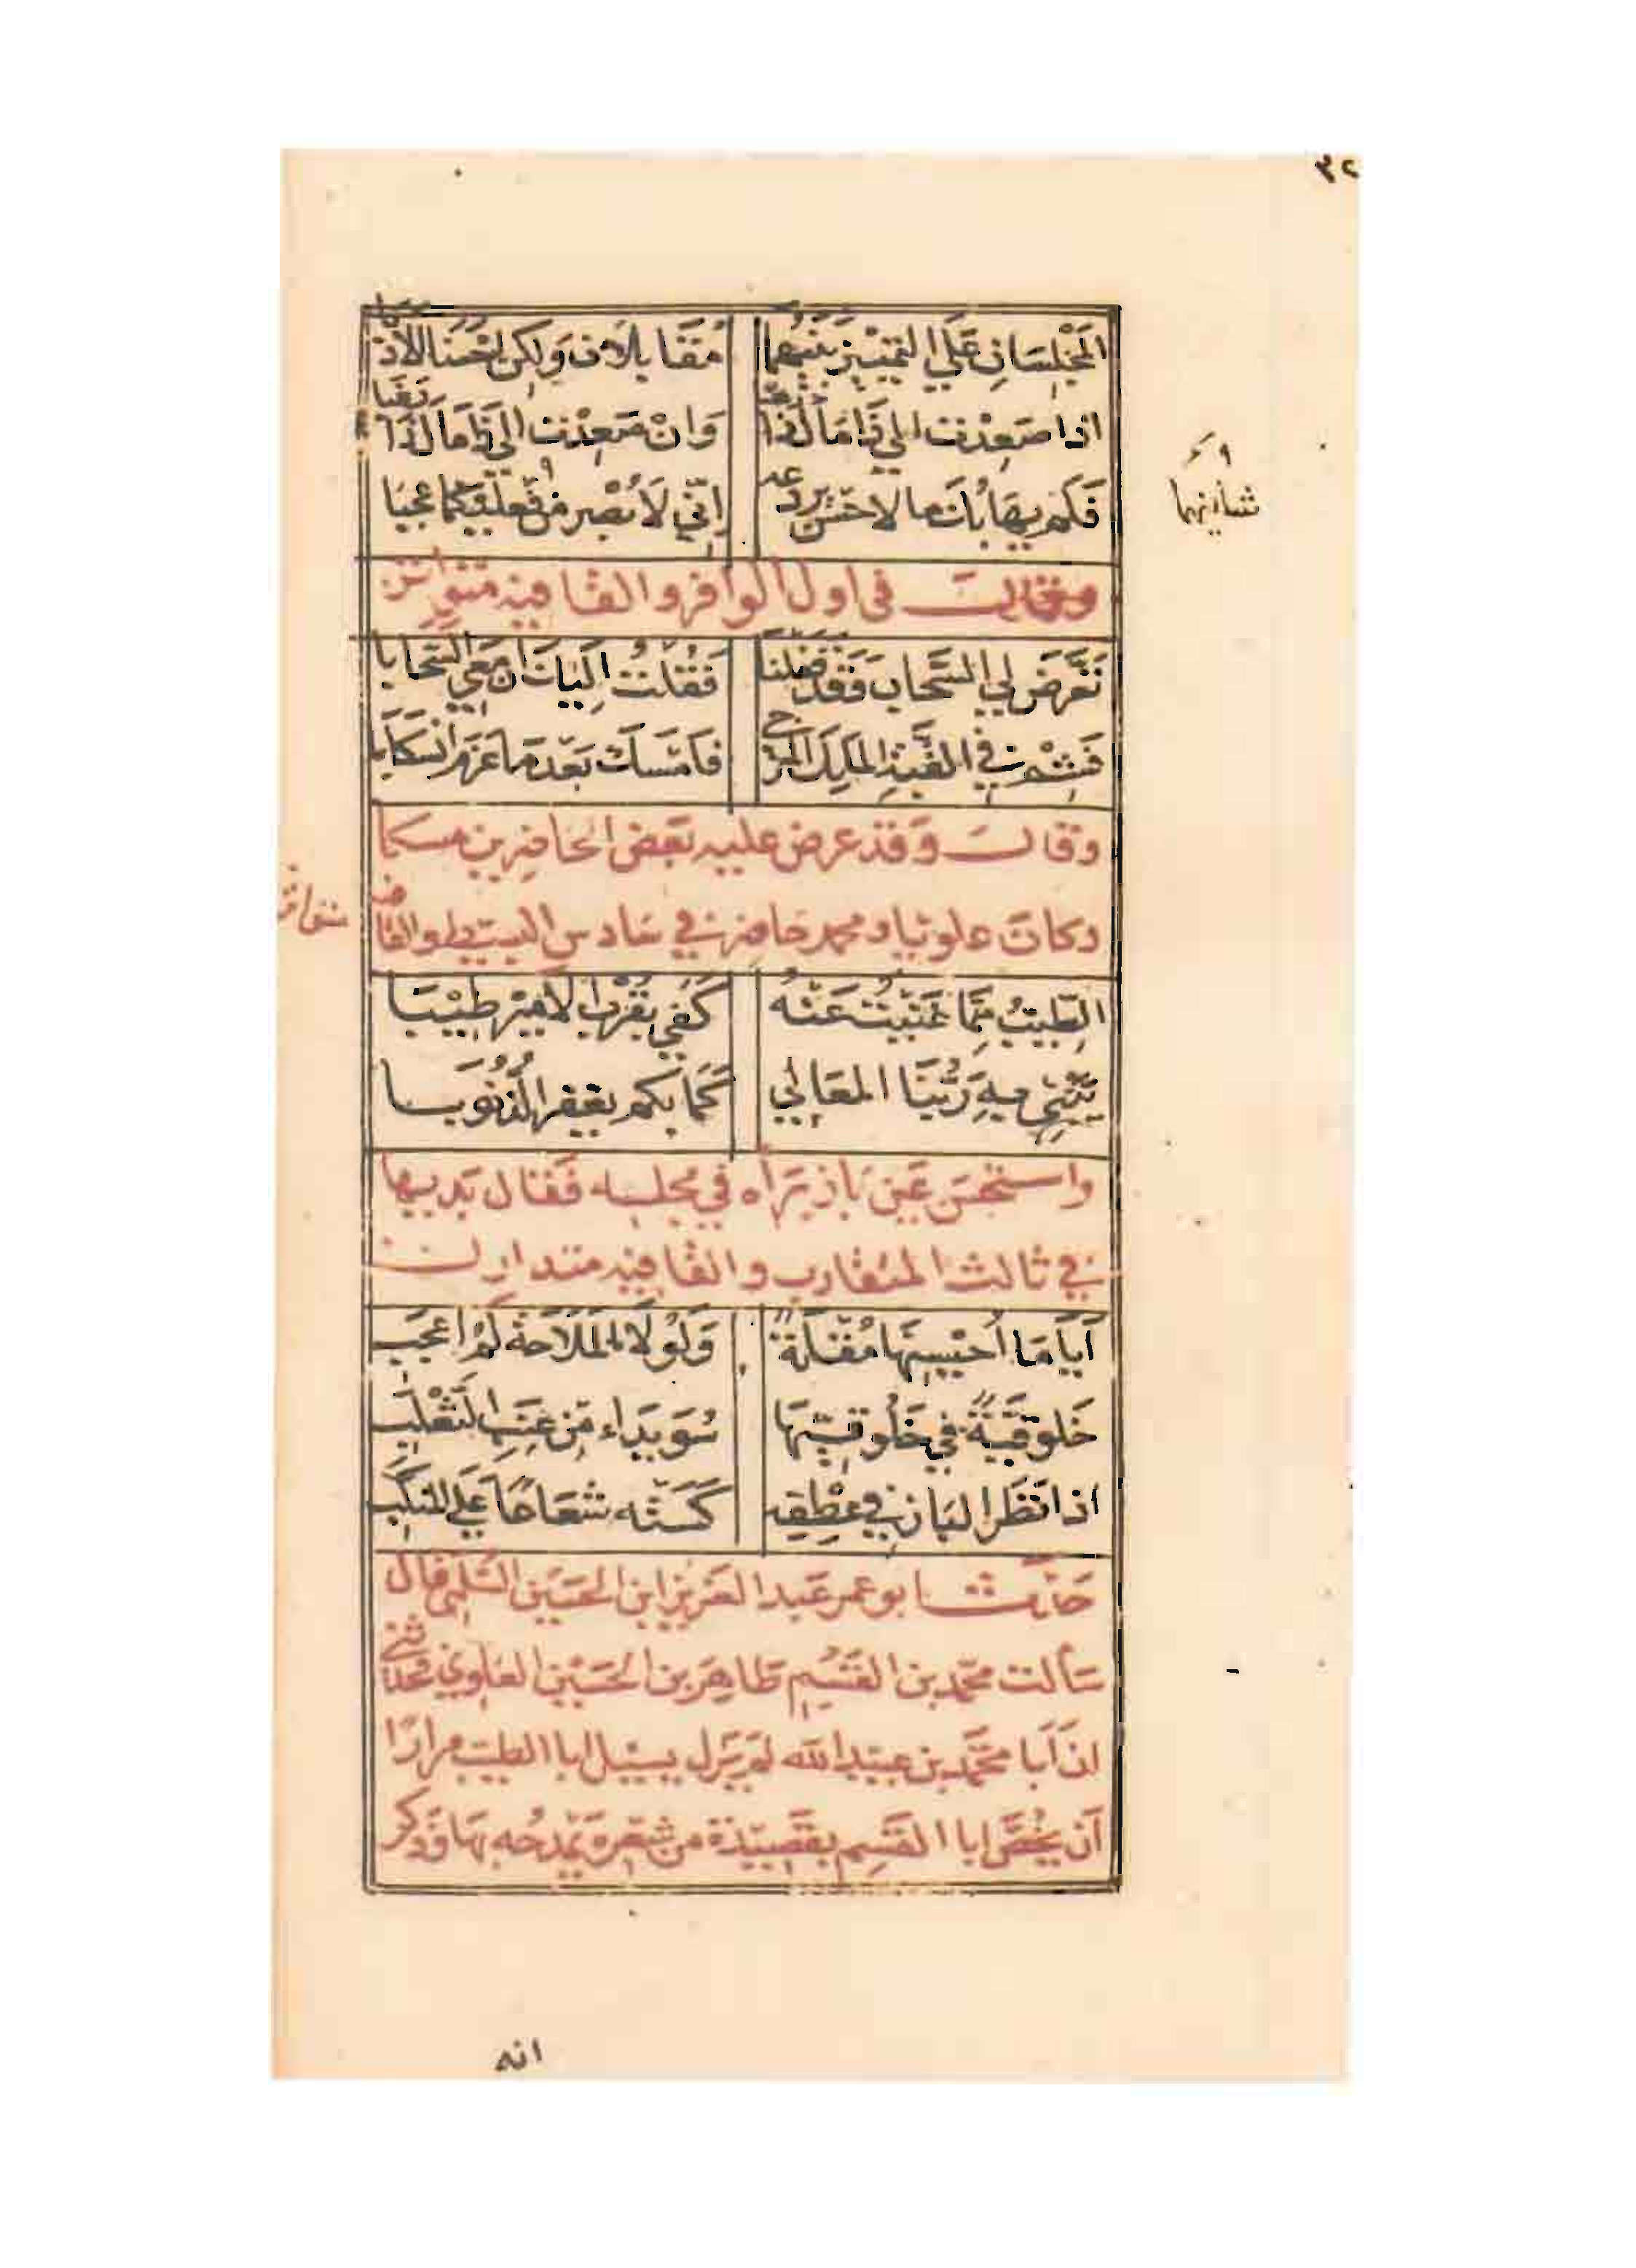 ٣٢
المَجْلِسَانِ عَلَى التَمْيِيْزِ بَيْنَهُمَا مُقَابِلَانِ وَلَكِنْ احْسَنَا الأَدَبَا
اذا صَعِدْتَ الى ذَا مَالَ ذَا رَهَبًا وَانْ صَعِدْتَ الى ذَا مَالَ ذَا رَهَبَا
فَلِمْ يَهَابُكَ مَا لا حِسَّ يردعه إِنّي لَأُبْصِرُ مِن فِعْلَيْهِمَا عَجَبَا
شأنيهما
وقال في اول الوافر والقافيه متواتر
تَعَرَّضَ لِي السَّحَابُ وَقَدْ قَفَلْنَا فَقُلْتُ اِلَيْكَ اِنَّ مَعِي السَّحَابَا
فَشِمْ فِي القُبَّةِ المَلِكَ المُرَجَّى فَاَمْسَكَ بَعْدَ مَا عَزَمَ انْسِكَابَا
وقال وَقَد عرض عليه بَعض الحَاضِرِين مسكا
وكان علويا ومحمد حاضر في سَادس البسيط والقافيه
متواتر
الطِّيبُ مِمَّا غَنِيْتُ عَنْهُ كَفَى بِقُرْبِ الأَمِيْرِ طِيْبَا
يَبْنِي بِهِ رَبُّنَا المَعَالِي كَمَا بِكُم يَغْفِرُ الذُّنُوبَا
واستحسن عَين بَاز يَرَاه في مجلسه فَقَال بَديها
في ثالث المتقارب والقافيه متدارك
أَيَا مَا اُحَيْسِنَهَا مُقْلَةً وَلَوْلَا المَلَاحَةُ لَم اعْجَبِ
خَلُوقِيَّةٌ فِي خَلُوقِيِّهَا سُوَيْدَاءُ مِنْ عِنَبِ الثَعْلَبِ
اذا نَظَرَ البَازُ فِي عِطْفِهِ كَسَتْه شُعَاعًا عَلَى المَنْكِبِ
حَدثنا ابو عمر عَبد العَزيز ابن الحَسَين السُّلَمي قال
سَألت محمّد بن القسم طاهِر بن الحسَيْن العَلوي فحدثني
ان أَبَا محمَّد بن عبيد الله لم يَزل يسئل ابا الطيب مرارًا
أن يَخُصَّ ابا القسم بقَصِيدَة من شعره يَمْدحُه بهَا وَذكر
انه